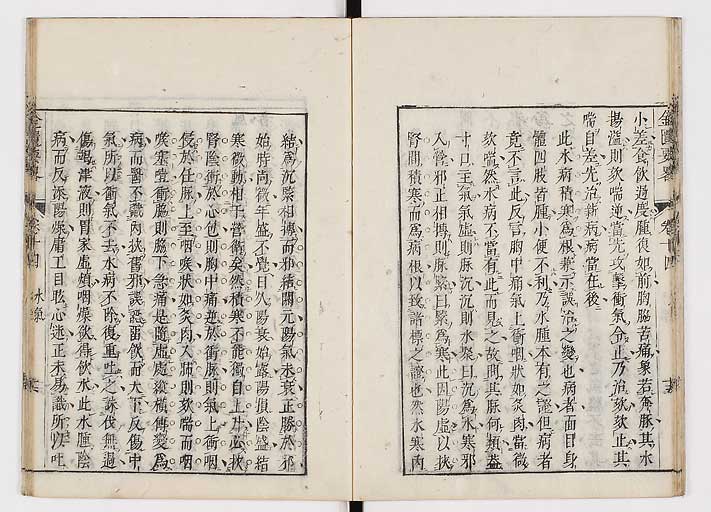 小差食飲過度腫復如前胸脇苦痛象若奔豚其水
揚溢則欬喘逆當先攻擊衝氣令止乃治欬欬止其
喘自差先治新病病當在後
此水病積寒爲根兼示誤治之變也病者面目身
體四肢皆腫小便不利乃水腫本有之證但病者
竟不言此反言胸中痛氣上衝咽狀如炙肉當微
欬喘然水病不當有此而見之故問其脉何類蓋
寸口主氣氣虛則脉沉沉則水緊曰沉爲水寒邪
入營邪正相搏則脉緊曰緊爲寒此因陽虛以挾
腎間積寒而爲病根以致諸標之證也然水寒內
結爲沉緊相搏而邪結關元陽氣未衰正勝於邪
始時尚微年盛不覺日久陽衰始露陽損陰盛結
寒微動相干營衛矣然積寒不能獨自上升必挾
腎陰衝於心包則胸中痛逆於衝脉則氣上衝咽
侵於任脉上至咽喉狀如炙肉入肺則欬喘而咽
喉塞噎衝脇則脇下急痛是隨虛處縱橫傳變爲
病而醫不識內挾舊病誤惡留飲而大下反傷中
氣所以衝氣不去水病不除復重吐之誅伐無過
傷竭津液則胃家虛煩咽燥欲得飲水此水腫陰
病而反添陽燥庸工目眩心迷正未易識所以吐
金匱要畧
卷十四
水氣